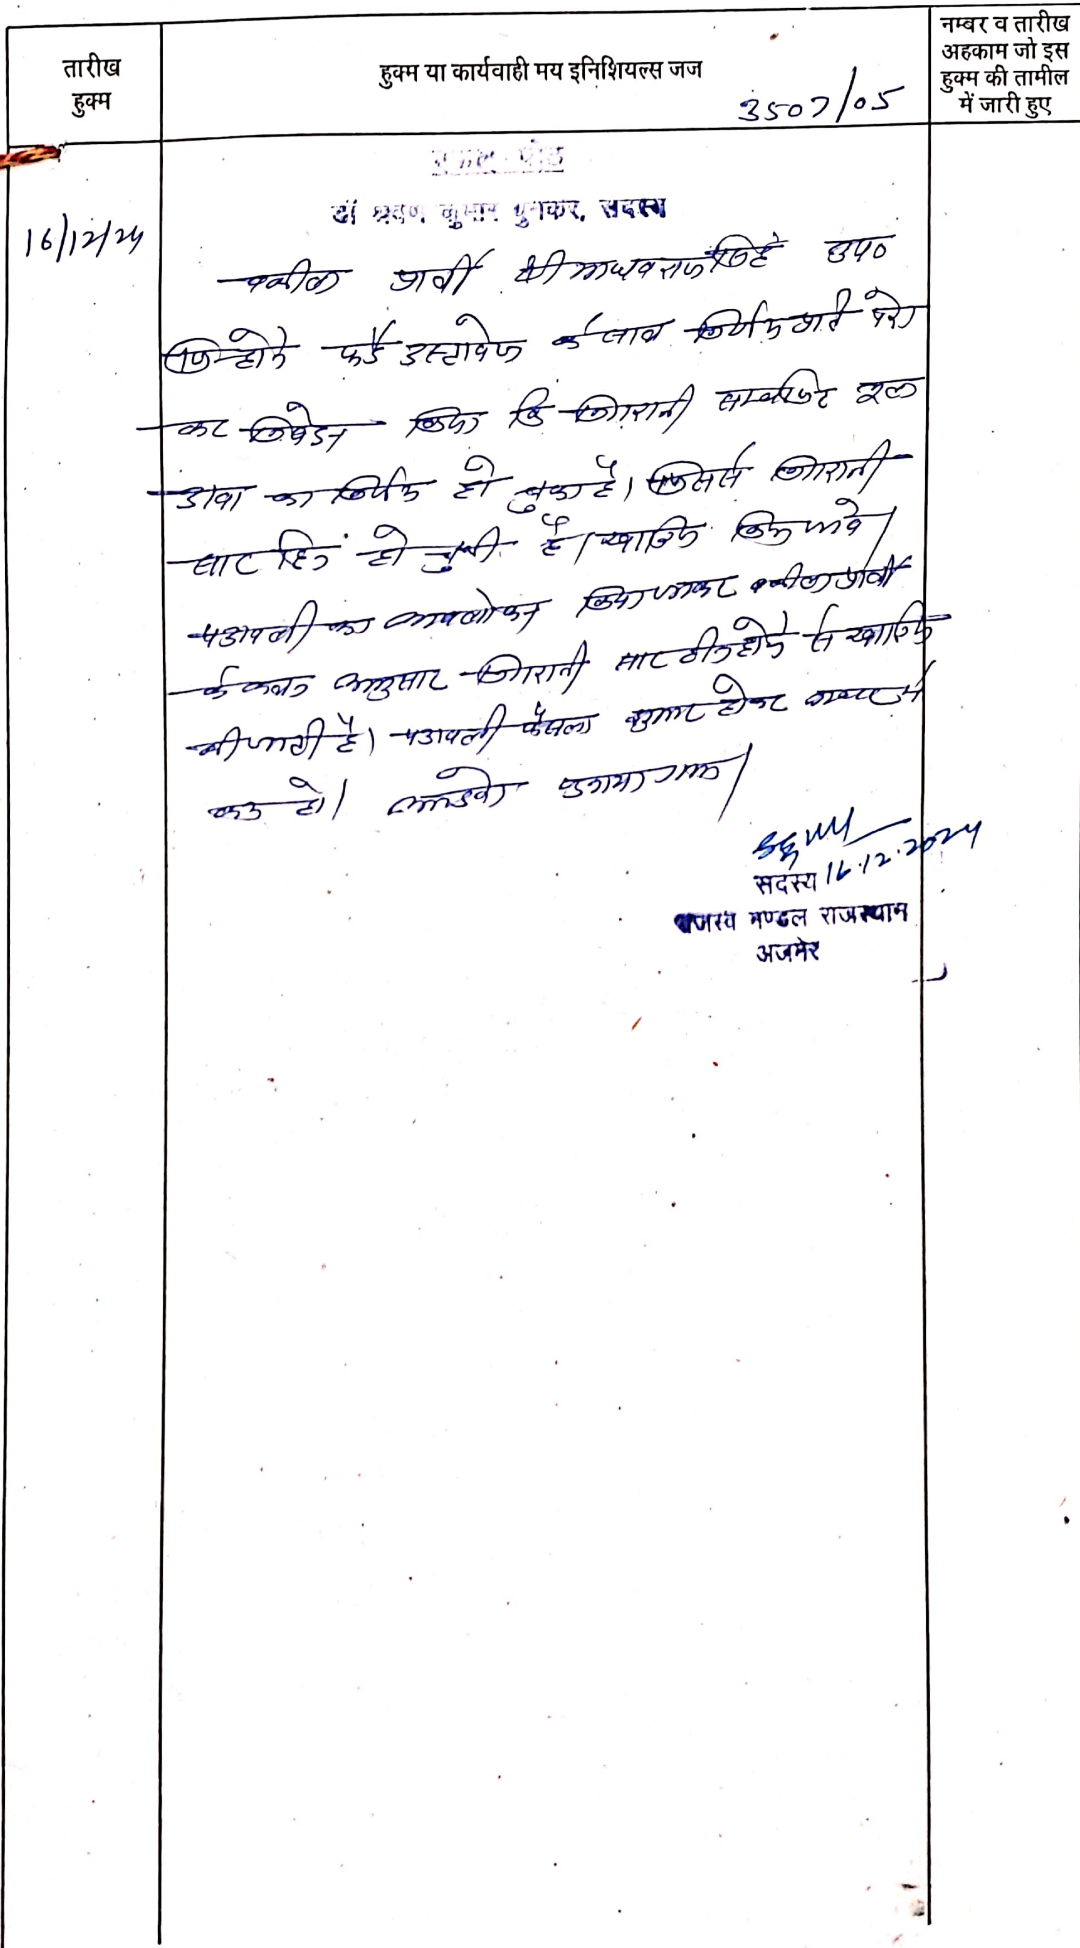 तारीख
हुक्म
हुक्म या कार्यवाही मय इनिशियल्स जज
3507/05
नम्बर व तारीख
अहकाम जो इस
हुक्म की तामील
में जारी हुए
एकल पीठ
डॉ श्रवण कुमार बुनकर, सदस्य
16/12/24
वकील प्रार्थी श्री माधवराजसिंह उप०
जिन्होंने फर्द दस्तावेज के साथ निर्णय प्रति पेश
कर निवेदन किया कि निगरानी सम्बन्धित मूल
दावा का निर्णय हो चुका है। जिससे निगरानी
सारहीन हो चुकी है। खारिज किया जावे।
पत्रावली का अवलोकन किया जाकर वकील प्रार्थी
के कथन अनुसार निगरानी सारहीन होने से खारिज
की जाती है। पत्रावली फैसला शुमार होकर नम्बर से
कम हो। आदेश सुनाया गया।
16.12.2024
सदस्य
राजस्व मण्डल राजस्थान
अजमेर